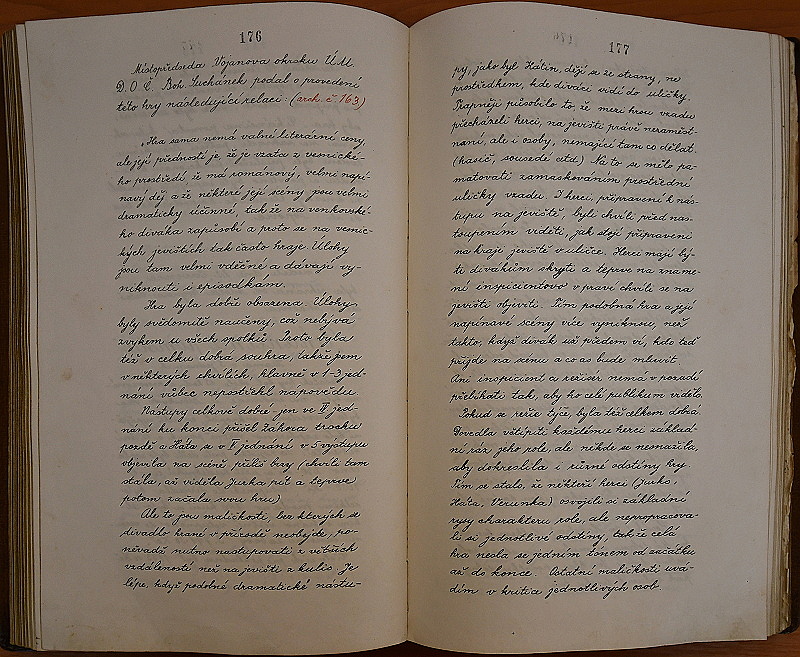 176
Místopředseda Vojanova okrsku Ú.M.
D.O.Č. Boh. Suchánek podal o provedení
této hry následující relaci: (arch. č. 163)
„Hra sama nemá valné literární ceny,
ale její předností je, že je vzata z vesnické-
ho prostředí, že má románový, velmi napí-
navý děj a že některé její scény jsou velmi
dramaticky účinné, tak že na venkovské-
ho diváka zapůsobí a proto se na vesnic-
kých jevištích tak často hraje. Úlohy
jsou tam velmi vděčné a dávají vy-
niknouti i episodkám.
Hra byla dobře obsazena. Úlohy
byly svědomitě naučeny, což nebývá
zvykem u všech spolků. Proto byla
též v celku dobrá souhra, takže jsem
v některých chvílích, hlavně v 1-3 jed-
nání vůbec nepostřehl nápovědu.
Nástupy celkově dobré - jen ve II jed-
nání ku konci přišel Záhora trochu
pozdě a Háta se v I jednání v 5 výstupu
objevila na scéně příliš brzy (chvíli tam
stála, až viděla Jurka pít a teprve
potom začala svou hru)
Ale to jsou maličkosti, bez kterých se
divadlo hrané v přírodě neobejde, po-
něvadž nutno nastupovati z větších
vzdáleností než na jevišti z kulis. Je
lépe, když podobné dramatické nástu-
177
py, jako byl Hátin, dějí se ze strany, ne
prostředkem, kde diváci vidí do uličky.
Trapněji působilo to, že mezi hrou vzadu
přecházeli herci, na jevišti právě nezaměst-
naní, ale i osoby, nemající tam co dělat.
(hasič, sousedé atd.) Na to se mělo pa-
matovati zamaskováním prostřední
uličky vzadu. I herci, připravení k nás-
tupu na jeviště, byli chvíli před nas-
toupením viděti, jak stojí připraveni
na kraji jeviště v uličce. Herci mají bý-
ti divákům skryti a teprve na zname-
ní inspicientovo v pravé chvíli se na
jevišti objeviti. Tím podobná hra a její
napínavé scény více vyniknou, než
takto, když divák už předem ví, kdo teď
přijde na scénu a co as bude mluvit.
Ani inspicient a režisér nemá v pozadí
přebíhati tak, aby ho celé publikum vidělo.
Pokud se režie týče, byla též celkem dobrá.
Dovedla vštípiti každému herci základ-
ní ráz jeho role, ale někde se nesnažila,
aby dokreslila i různé odstíny hry.
Tím se stalo, že někteří herci (Jurka,
Háta, Verunka) osvojili si základní
rysy charakteru role, ale nepropracova-
li si jednotlivé odstíny, tak že celá
hra nesla se jedním tónem od začátku
až do konce. Ostatní maličkosti uvá-
dím v kritice jednotlivých osob.